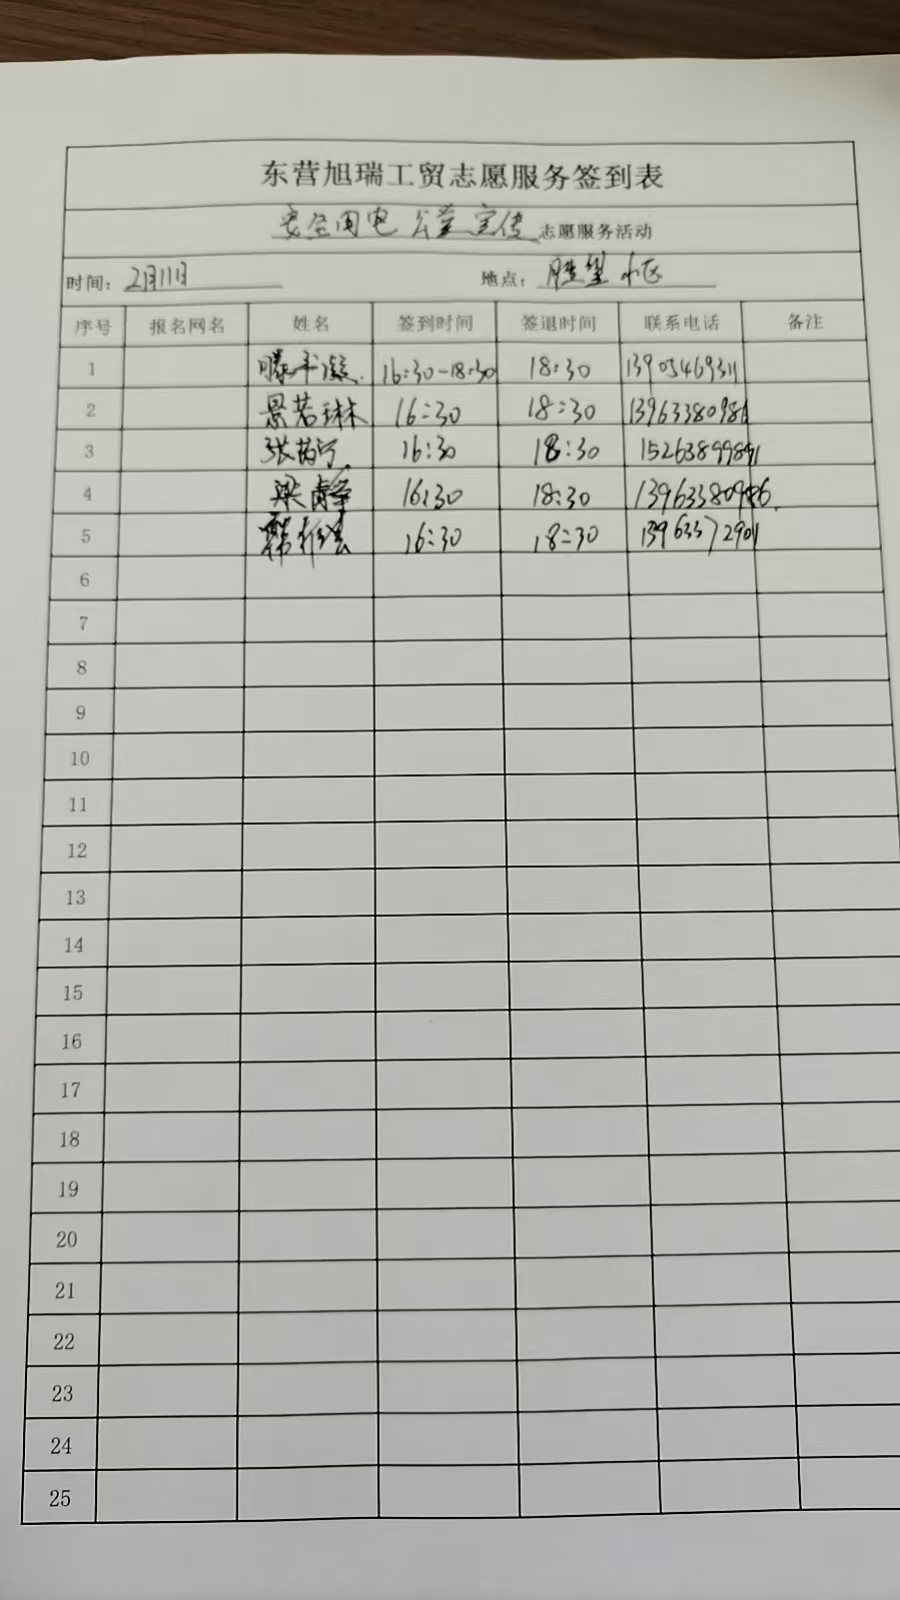 东营旭瑞工贸志愿服务签到表
安全用电 公益宣传 志愿服务活动
时间：2月11日 地点：胜堡小区
序号 报名网名 姓名 签到时间 签退时间 联系电话 备注
1 16:30-18:30 18:30 13905469311
2 景若琳 16:30 18:30 13963380986
3 16:30 18:30
4 梁 16:30 18:30
5 韩 16:30 18:30 13963572901
6
7
8
9
10
11
12
13
14
15
16
17
18
19
20
21
22
23
24
25